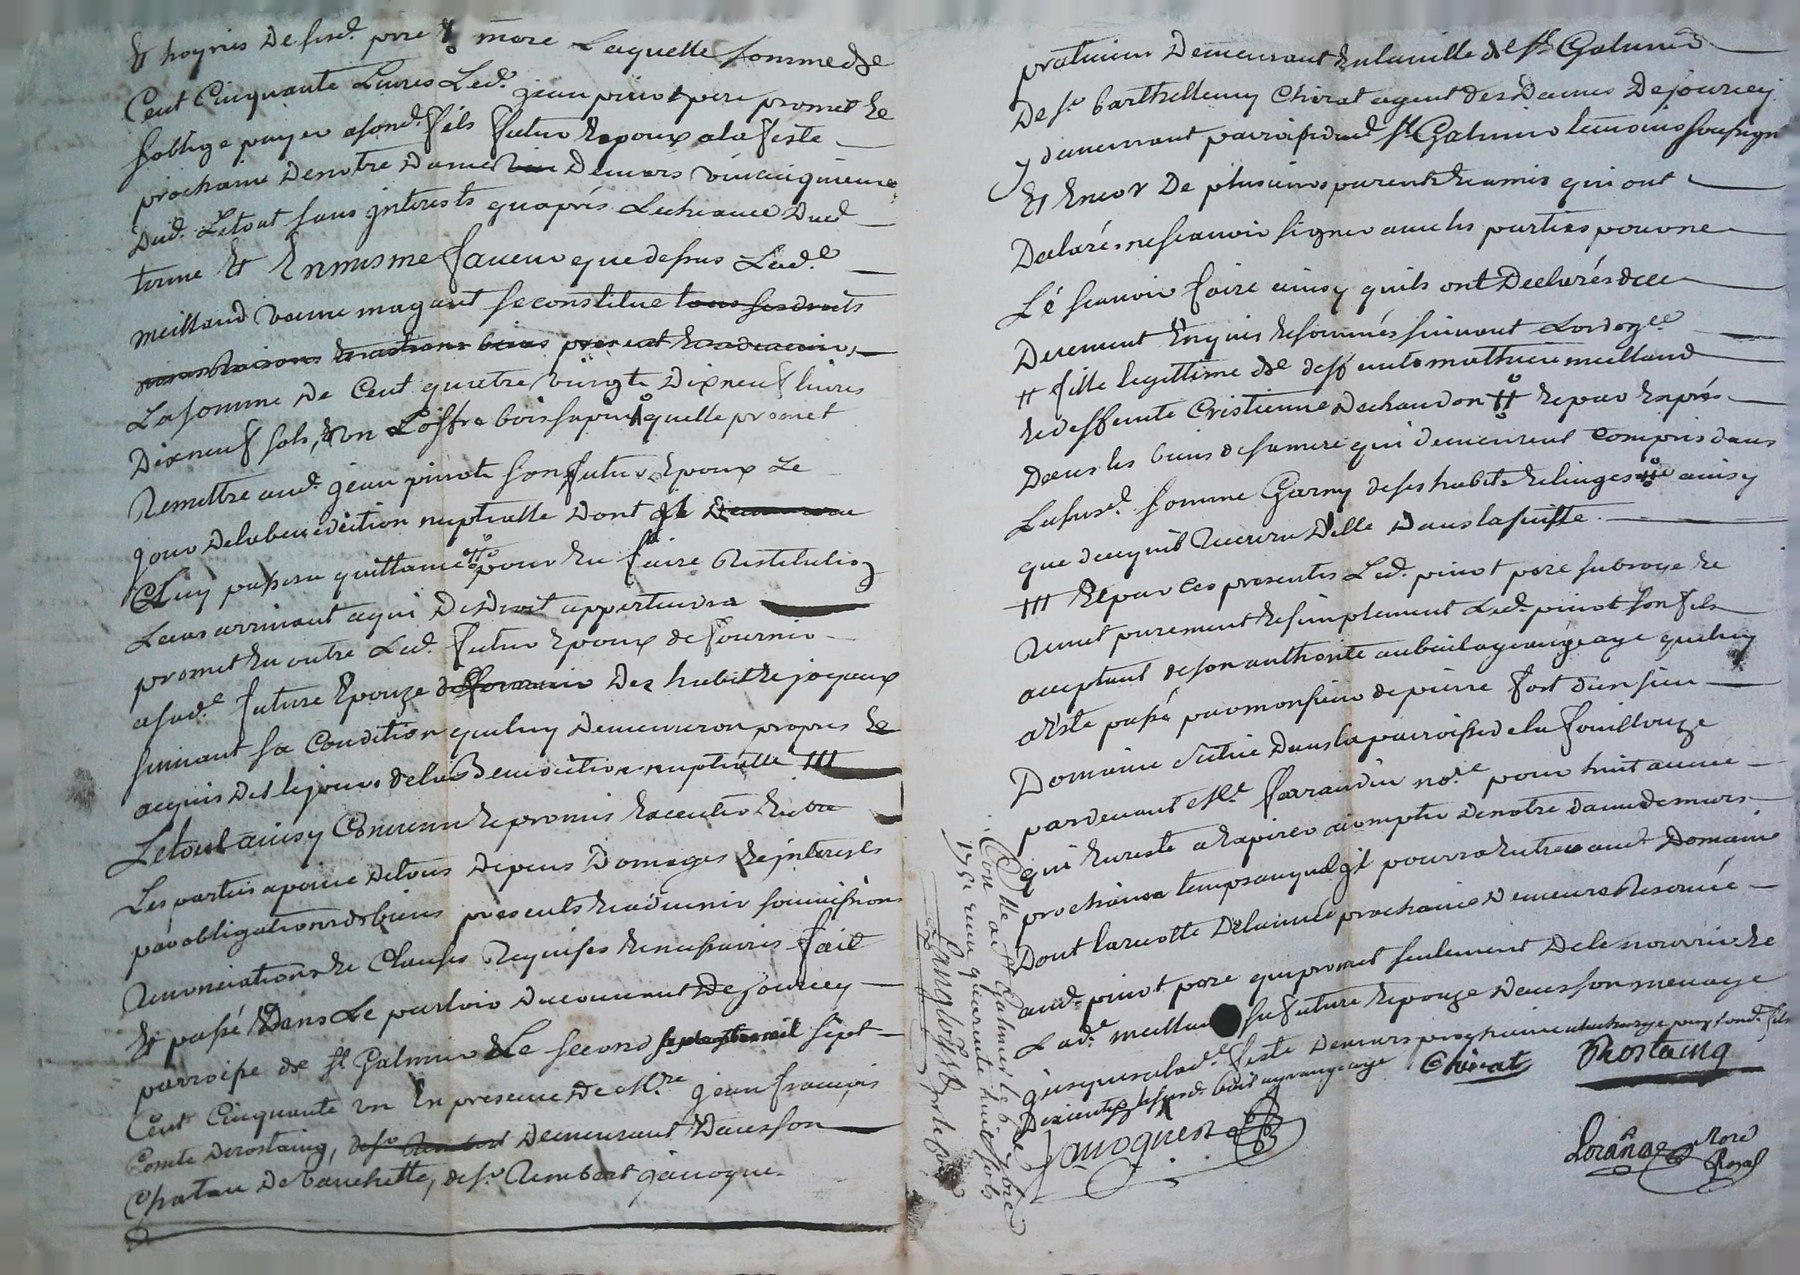 Et hoyries de susd. pere & mere Laquelle somme de
Cent Cinquante Livres Led. jean pinot pere promet Et
soblige payer a sond. fils futur Epoux a la feste
prochaine de notre dame de mars vint cinquieme
dud. Le tout sans jnterests qu'aprés Lecheance dud.
terme Et En mesme faveur que dessus Lad.e
meilland veuve magant se constitue tous ses droits
noms raisons Et actions biens present Et advenir,
La somme de Cent quatre vingts dix neuf livres
dix neuf sols, & Un Coffre bois sapin quelle promet
Remettre aud. jean pinot son futur Epoux Le
jour de la benediction nuptialle dont jl
Luy passera quittance pour En faire Restitution
Le cas arrivant a qui de droit appartiendra
promet En outre Led. futur Epoux de fournir
a sad.e future Epouze des habits Et joyaux
suivant sa Condition qui luy demeureron propres Et
acquis des le jour de la Benediction nuptialle ///
Le tout ainsy Convenu Et promis Executer Entre
Les parties a peine de tous depens domages Et jnterests
par obligation de biens presents Et advenir soumissions
Renonciations Et Clauses Requises Et necessaires fait
Et passé dans Le parloir du couvent de jourcey
parroisse de St Galmier Le second sept
Cent Cinquante un En presence de Mre jean francois
Comte derostaing, demeurant dans son
Chateau de vauchette, de sr Rembert janoque
praticien demeurant En la ville de St Galmier
de sr barthellemy Chirat agent des dames de jourcey
y demeurant parroisse dud. St Galmier temoins soussignés
Et Encor de plusieurs parents Et amis qui ont
declarés ne scavoir signer avec les parties pour ne
Lé scavoir faire ainsy quils ont declarés de ce
deuement Enquis Et sommés suivant Lordon.ce
# fille legittime de deffunts mathieu meilland
Et deffunte Cristienne dechandon # Et par Exprés
dans les biens de sa mere qui demeurent Compris dans
La susd. somme Garny de ses habits Et linges ainsy
que de ce quil Recevra delle dans la suitte.
/// Et par ces presentes Led. pinot pere subroge Et
Remet purement Et simplement Led. pinot son fils
acceptant de son authorité au bail a grangeage qui luy
a Esté passé par monsieur de pierre fort d'un sien
Domaine scitué dans la parroisse de la fouillouze
par devant Me farrandin nore pour huit année
qui En reste a Expirer a compter de notre dame de mars
prochaine temps auquel jl pourra Entrer aud. Domaine
Dont la recolte de lannée prochaine demeure Reservée
aud. pinot pere qui promet seulement de le nourrir Et
Lad.e meilland sa future Epouze dans son menage
jusques a lad.e feste de mars prochaine a la charge par sond. fils
dexecuter le susd. bail a grangeage Chirat Rostaing
janoque
Lorañge Nore Royal
Con.lle a St Galmier le 6
1751 reçu quarante huit sols
Langloist